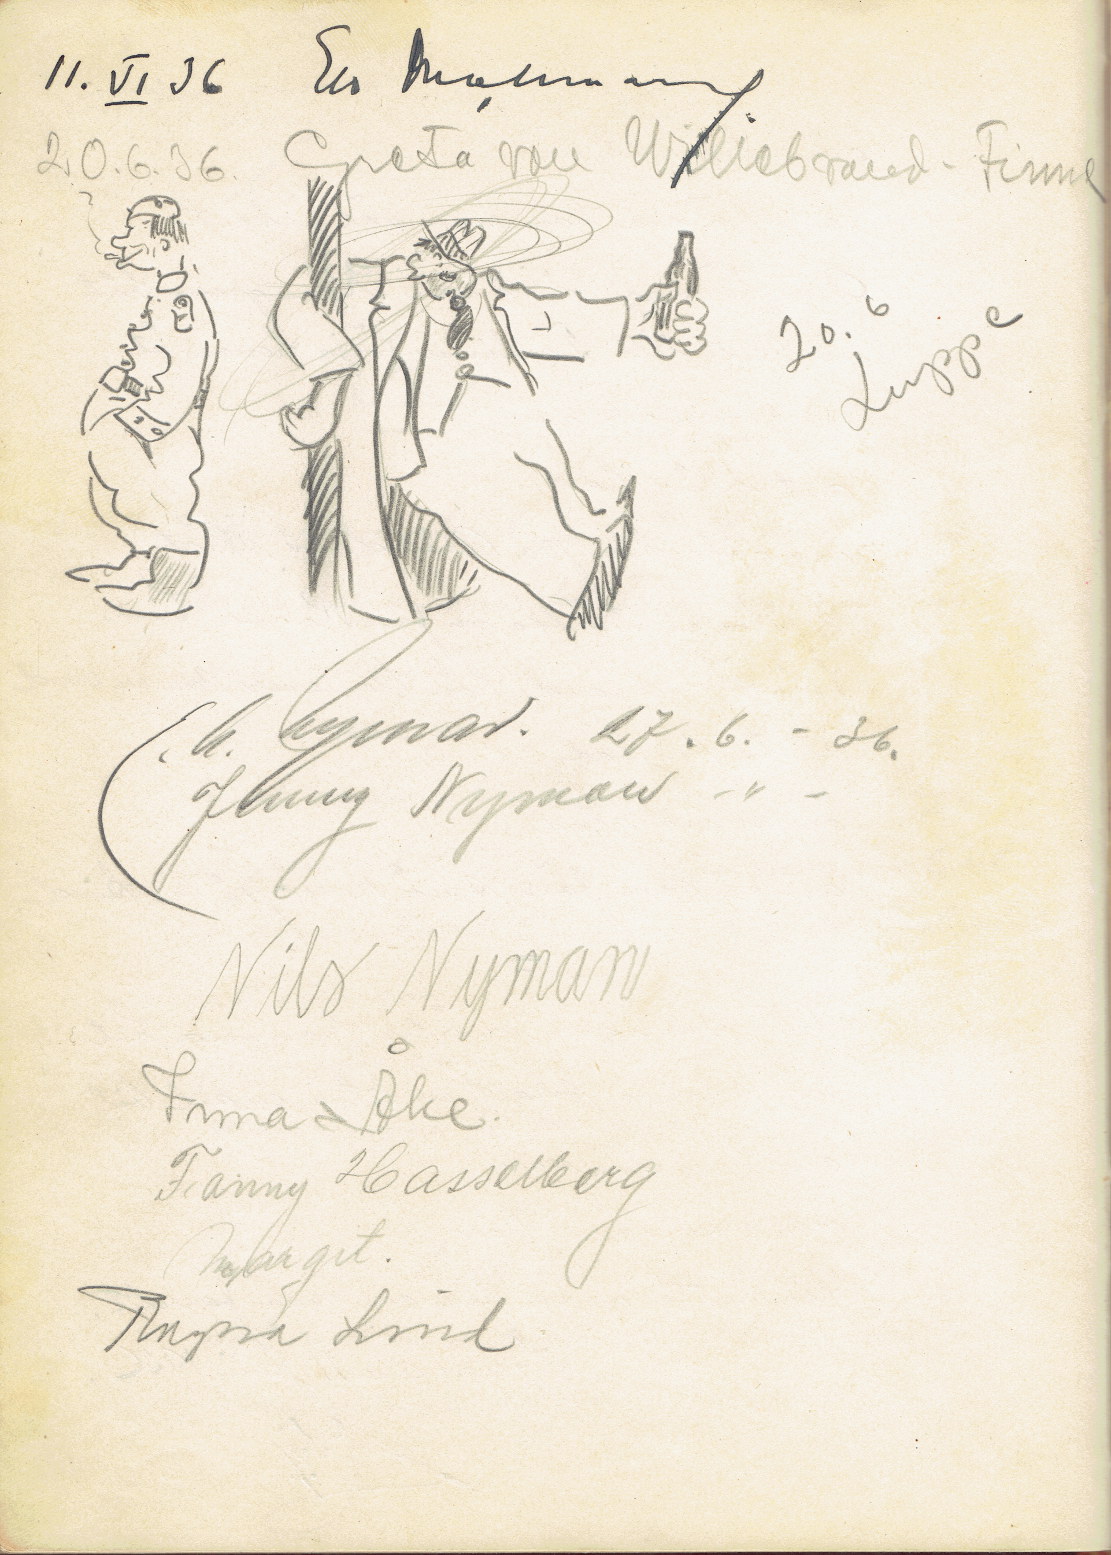 11. VI 36
20.6.36. Greta von Willebrand-Finne
20.6
Luppe
Nyman. 27.6. - 36.
Jenny Nyman - " -
Nils Nyman
Irma & Åke.
Fanny Hasselberg
Margit.
Lind